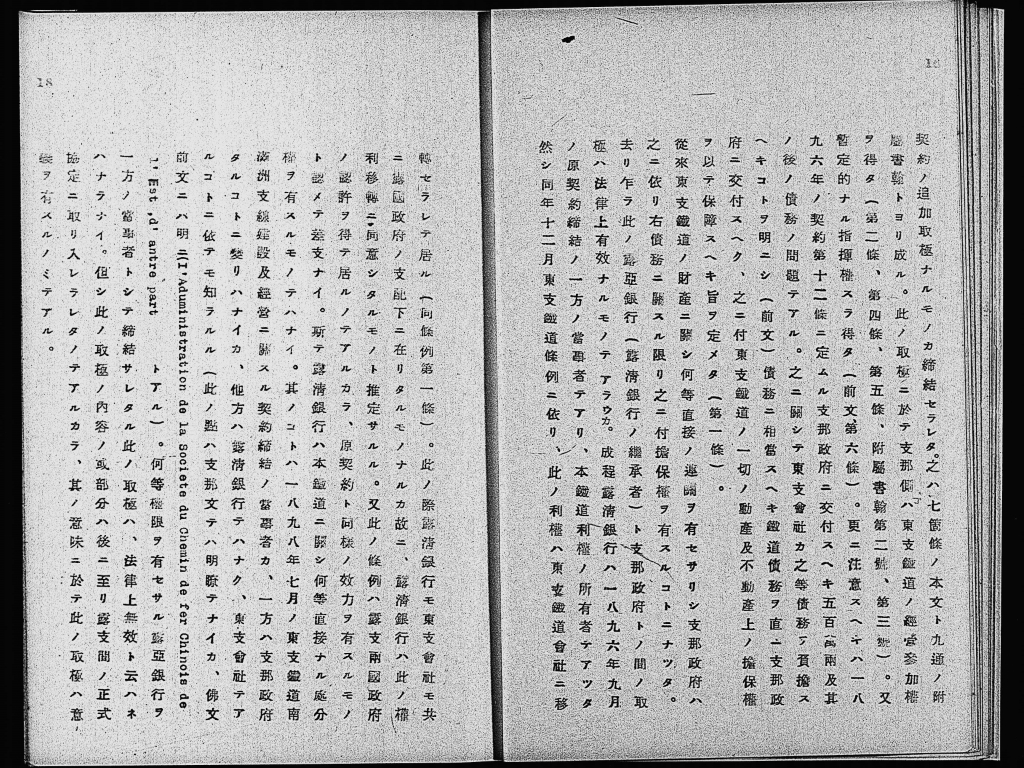 契約ノ追加取極ナルモノカ締結セラレタ。之ハ七箇條ノ本文ト九通ノ附
屬書翰トヨリ成ル。此ノ取極ニ於テ支那側ハ東支鐵道ノ經營參加權
ヲ得タ(第二條、第四條、第五條、附屬書翰第二號、第三號)。又
暫定的ナル指揮權スラ得タ(前文第六條)。更ニ注意スヘキハ一八
九六年ノ契約第十二條ニ定ムル支那政府ニ交付スヘキ五百萬兩及其
ノ後ノ債務ノ問題テアル。之ニ關シテ東支會社カ之等債務ヲ負擔ス
ヘキコトヲ明ニシ(前文)債務ニ相當スヘキ鐵道債務ヲ直ニ支那政
府ニ交付スヘク、之ニ付東支鐵道ノ一切ノ動產及不動產上ノ擔保權
ヲ以テ保障スヘキ旨ヲ定メタ(第一條)。
從來東支鐵道ノ財產ニ關シ何等直接ノ連關ヲ有セサリシ支那政府ハ
之ニ依リ右債務ニ關スル限リ之ニ付擔保權ヲ有スルコトニナツタ。
去リ乍ラ此ノ露亞銀行(露清銀行ノ繼承者)ト支那政府トノ間ノ取
極ハ法律上有效ナルモノテアラウカ。成程露清銀行ハ一八九六年九月
ノ原契約締結ノ一方ノ當事者テアリ、本鐵道利權ノ所有者テアツタ
然シ同年十二月東支鐵道條例ニ依リ、此ノ利權ハ東支鐵道會社ニ移
18
轉セラレテ居ル(同條例第一條)。此ノ際露清銀行モ東支會社モ共
ニ露國政府ノ支配下ニ在リタルモノナルカ故ニ、露清銀行ハ此ノ權
利移轉ニ同意シタルモノト推定サルル。又此ノ條例ハ露支兩國政府
ノ認許ヲ得テ居ルノテアルカラ、原契約ト同樣ノ效力ヲ有スルモノ
ト認メテ差支ナイ。斯テ露清銀行ハ本鐵道ニ關シ何等直接ナル處分
權ヲ有スルモノテハナイ。其ノコトハ一八九八年七月ノ東支鐵道南
滿洲支線建設及經營ニ關スル契約締結ノ當事者カ、一方ハ支那政府
タルコトニ變リハナイカ、他方ハ露清銀行テハナク、東支會社テア
ルコトニ依テモ知ラルル(此ノ點ハ支那文テハ明瞭テナイカ、佛文
前文ニハ明ニ(l'Aduministration de la Societe du Chemin de fer Chinois de
l' Est ,d' antre part トアル)。何等權限ヲ有セサル露亞銀行ヲ
一方ノ當事者トシテ締結サレタル此ノ取極ハ、法律上無效ト云ハネ
ハナラナイ。但シ此ノ取極ノ內容ノ或部分ハ後ニ至リ露支間ノ正式
協定ニ取リ入レラレタノテアルカラ、其ノ意味ニ於テ此ノ取極ハ意
義ヲ有スルノミテアル。